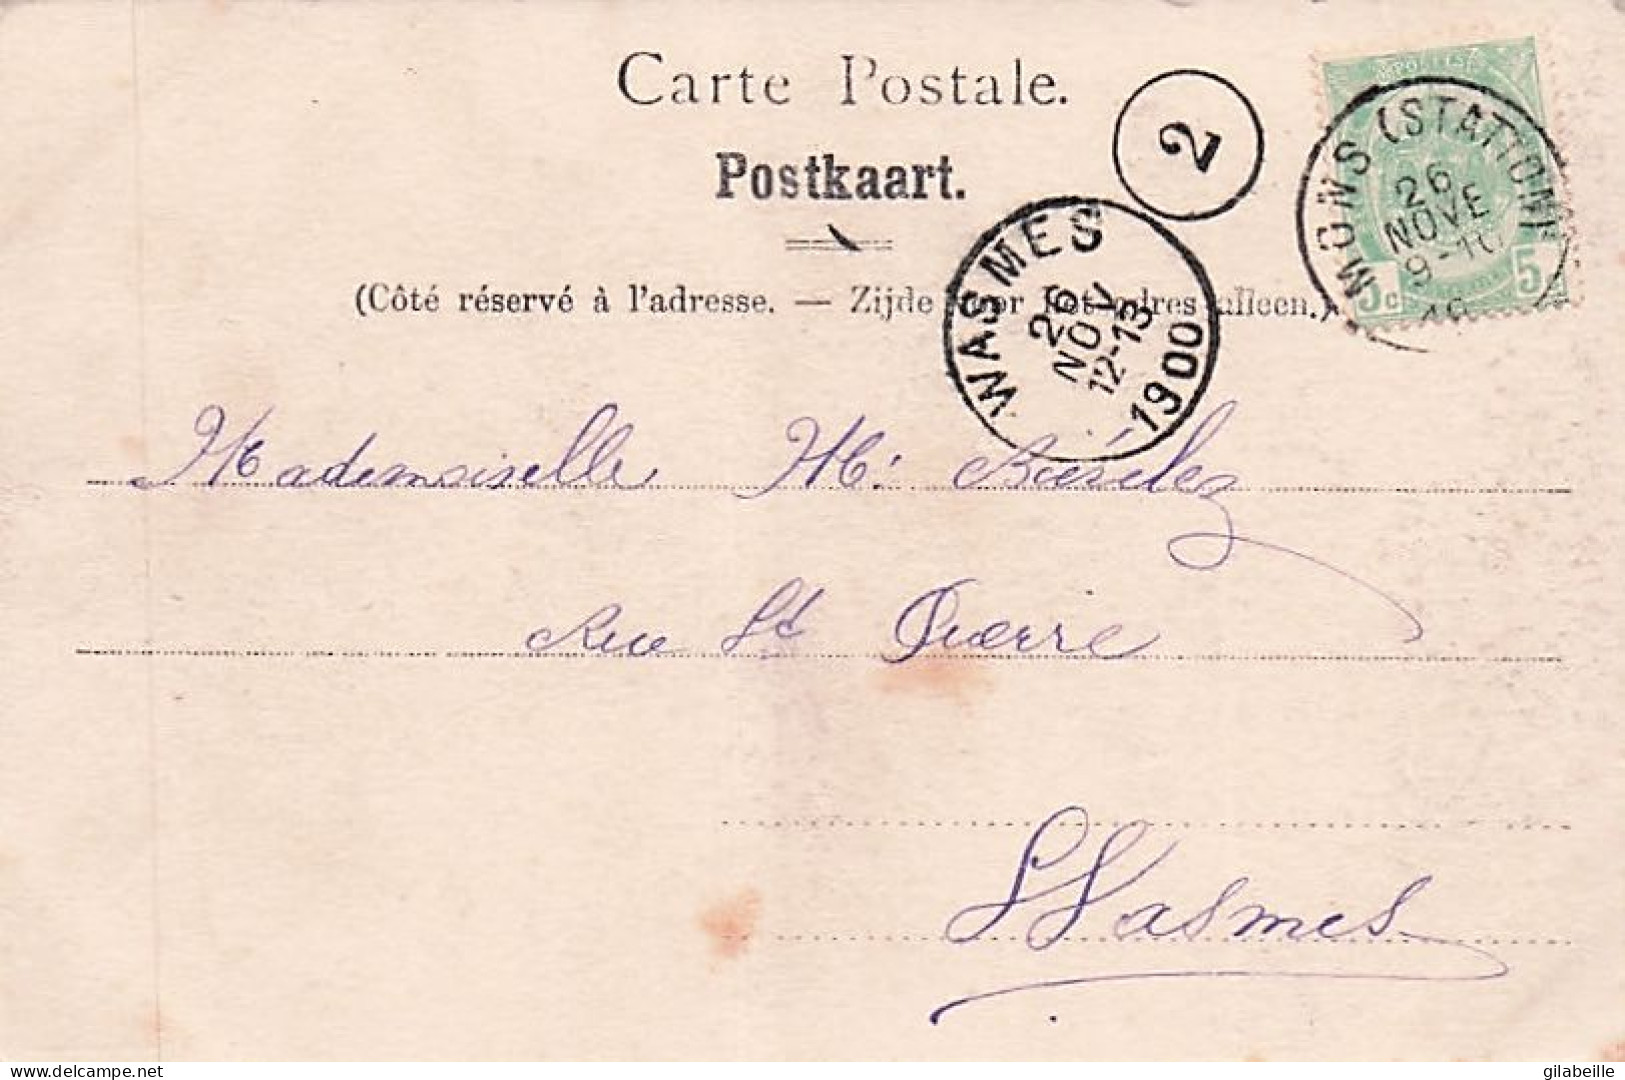 Carte Postale.
Postkaart.
(Côté réservé à l'adresse. — Zijde voor het adres alleen.)
2
MONS (STATION)
26
NOVE
9-10
5c 5
WASMES
26
NOV
12-13
1900
Mademoiselle M:
Rue St Pierre
Wasmes
delcampe.net
gilabeille